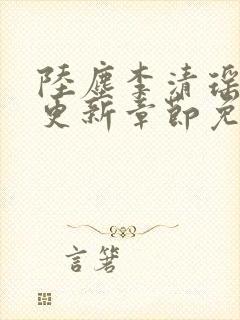 陸塵李清瑶
更新章節免
言箸